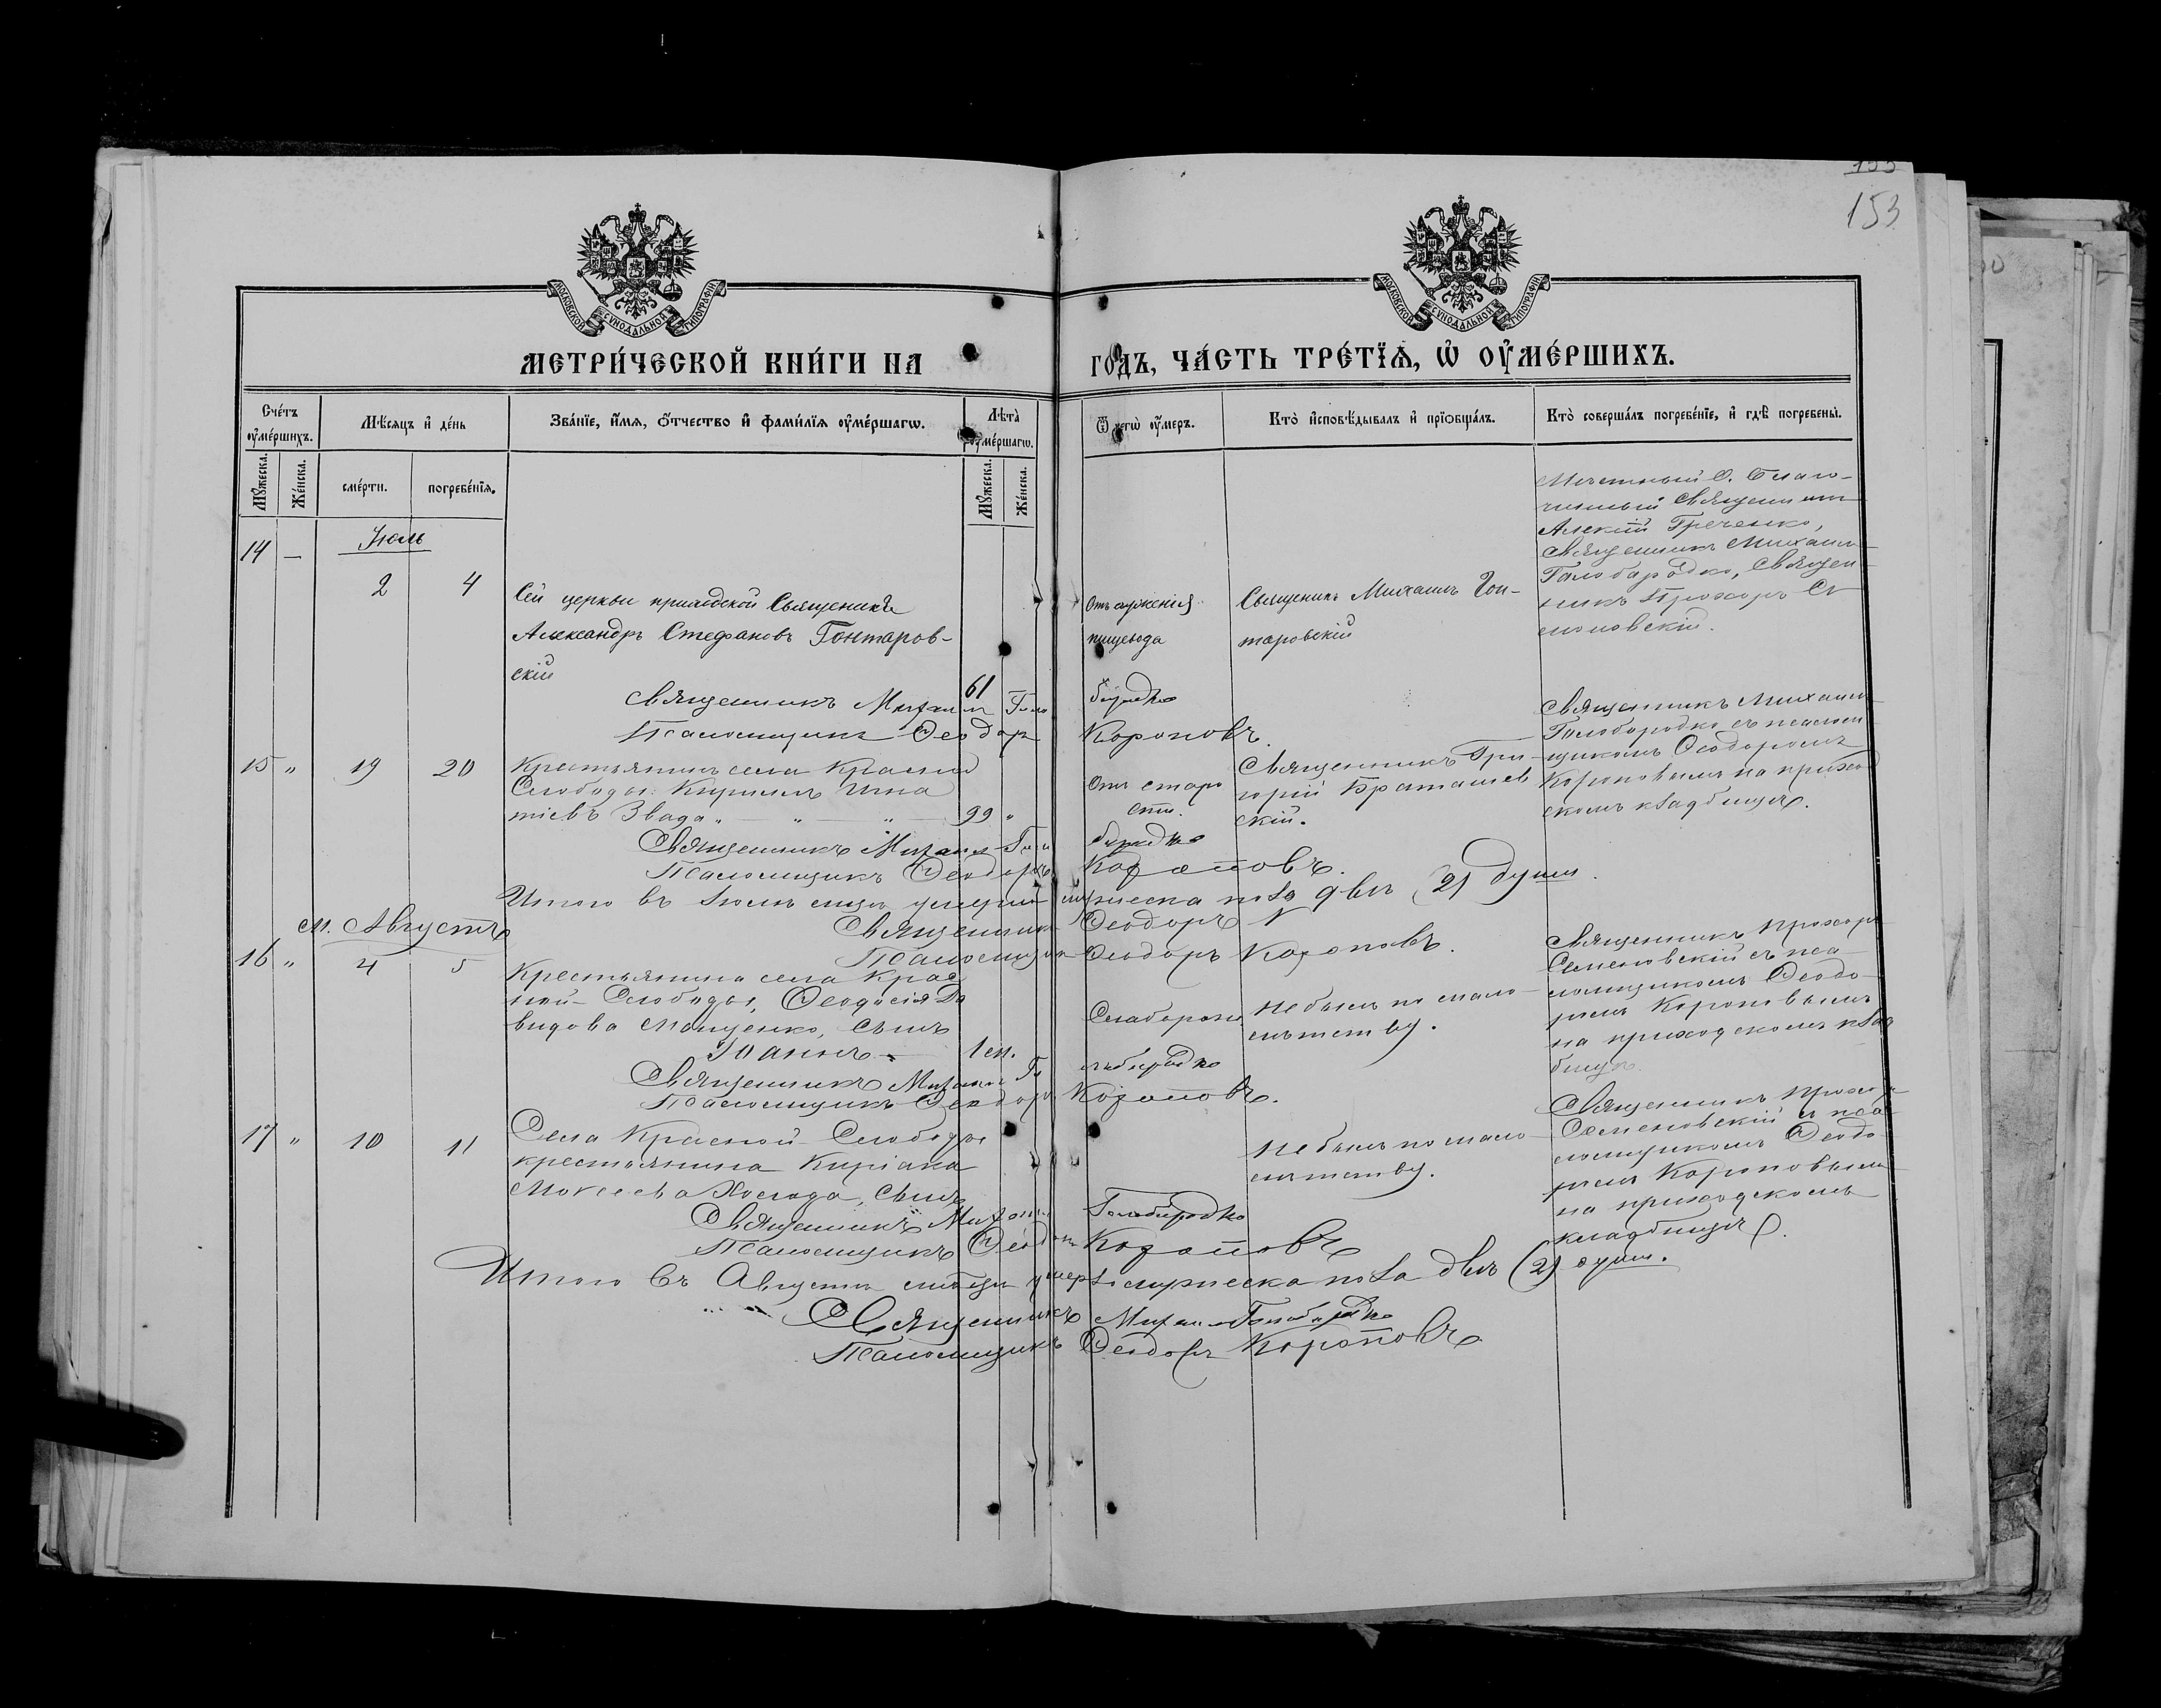 153
МОСКОВСКОЙ СѴНОДАЛЬНОЙ ТИПОГРАФІИ
МОСКОВСКОЙ СѴНОДАЛЬНОЙ ТИПОГРАФІИ
МЕТРИ́ЧЕСКОЙ КНИ́ГИ НА ГОДЪ, ЧА́СТЬ ТРЕ́ТЇѦ, Ѡ҆ ОУ҆МЕ́РШИХЪ.
Сче́тъ оу҆ме́ршихъ.
Мѣ́сяцъ и҆ де́нь
Зва́нїе, и҆́мѧ, ѻ҆́тчество и҆ фами́лїѧ оу҆ме́ршагѡ.
Лѣта̀ оу҆ме́ршагѡ.
Ѿ чегѡ̀ оу҆́меръ.
Кто̀ и҆сповѣ́дывалъ и҆ прїѡбща́лъ.
Кто̀ соверша́лъ погребе́нїе, и҆ гдѣ̀ погребены̀.
Мꙋ́жеска.
Же́нска.
сме́рти.
погребе́нїѧ.
Мꙋ́жеска.
Же́нска.
Іюль
14 —
2 4
Сей церкви приходской Священникъ
Александръ Стефановъ Гонтаров-
скій
61
пищевода
Священникъ Михаилъ Гон-
таровскій
Мѣстный О. Благо-
чинный Священникъ
Алексій Греченко,
Священникъ Михаилъ
Голобородко, Священ-
никъ Прохоръ Се
меновскій.
Священникъ Михаилъ Голобородко
Псаломщикъ Ѳеодоръ Короповъ.
15 " 19 20
Крестьянинъ села Красной
Слободы: Кириллъ Игна
тіевъ Звада " — " — " — 99 "
Отъ старо
сти.
Священникъ Гри-
горій Браташев
скій.
Священникъ Михаилъ
Голобородко съ псалом
щикомъ Ѳеодоромъ
Короповымъ на приход
скомъ кладбищѣ.
Священникъ Михаилъ Голобородко
Псаломщикъ Ѳеодоръ Короповъ.
Итого въ Іюлѣ умерло мужеска пола двѣ (2) души.
Священникъ
Псаломщикъ Ѳеодоръ Короповъ.
М. Августъ
16 " 4 5
Крестьянина села Крас
ной-Слободы, Ѳеодосія Да
видова сынъ
Іоаннъ — 1 м.
Не былъ по мало-
лѣтству.
Священникъ Прохоръ
Семеновскій съ пса-
ломщикомъ Ѳеодо-
ромъ Короповымъ
на приходскомъ клад
бищѣ.
Священникъ Михаилъ Голобородко
Псаломщикъ Ѳеодоръ Короповъ.
17 " 10 11
Села Красной-Слободы
крестьянина Киріака
сынъ
Не былъ по мало-
лѣтству.
Священникъ Прохоръ
Семеновскій съ пса-
ломщикомъ Ѳеодо-
ромъ Короповымъ
на приходскомъ
кладбищѣ.
Священникъ Михаилъ Голобородко
Псаломщикъ Ѳеодоръ Короповъ
Итого въ Августѣ мѣсяцѣ умерло мужеска пола двѣ (2) души.
Священникъ Михаилъ Голобородко
Псаломщикъ Ѳеодоръ Короповъ